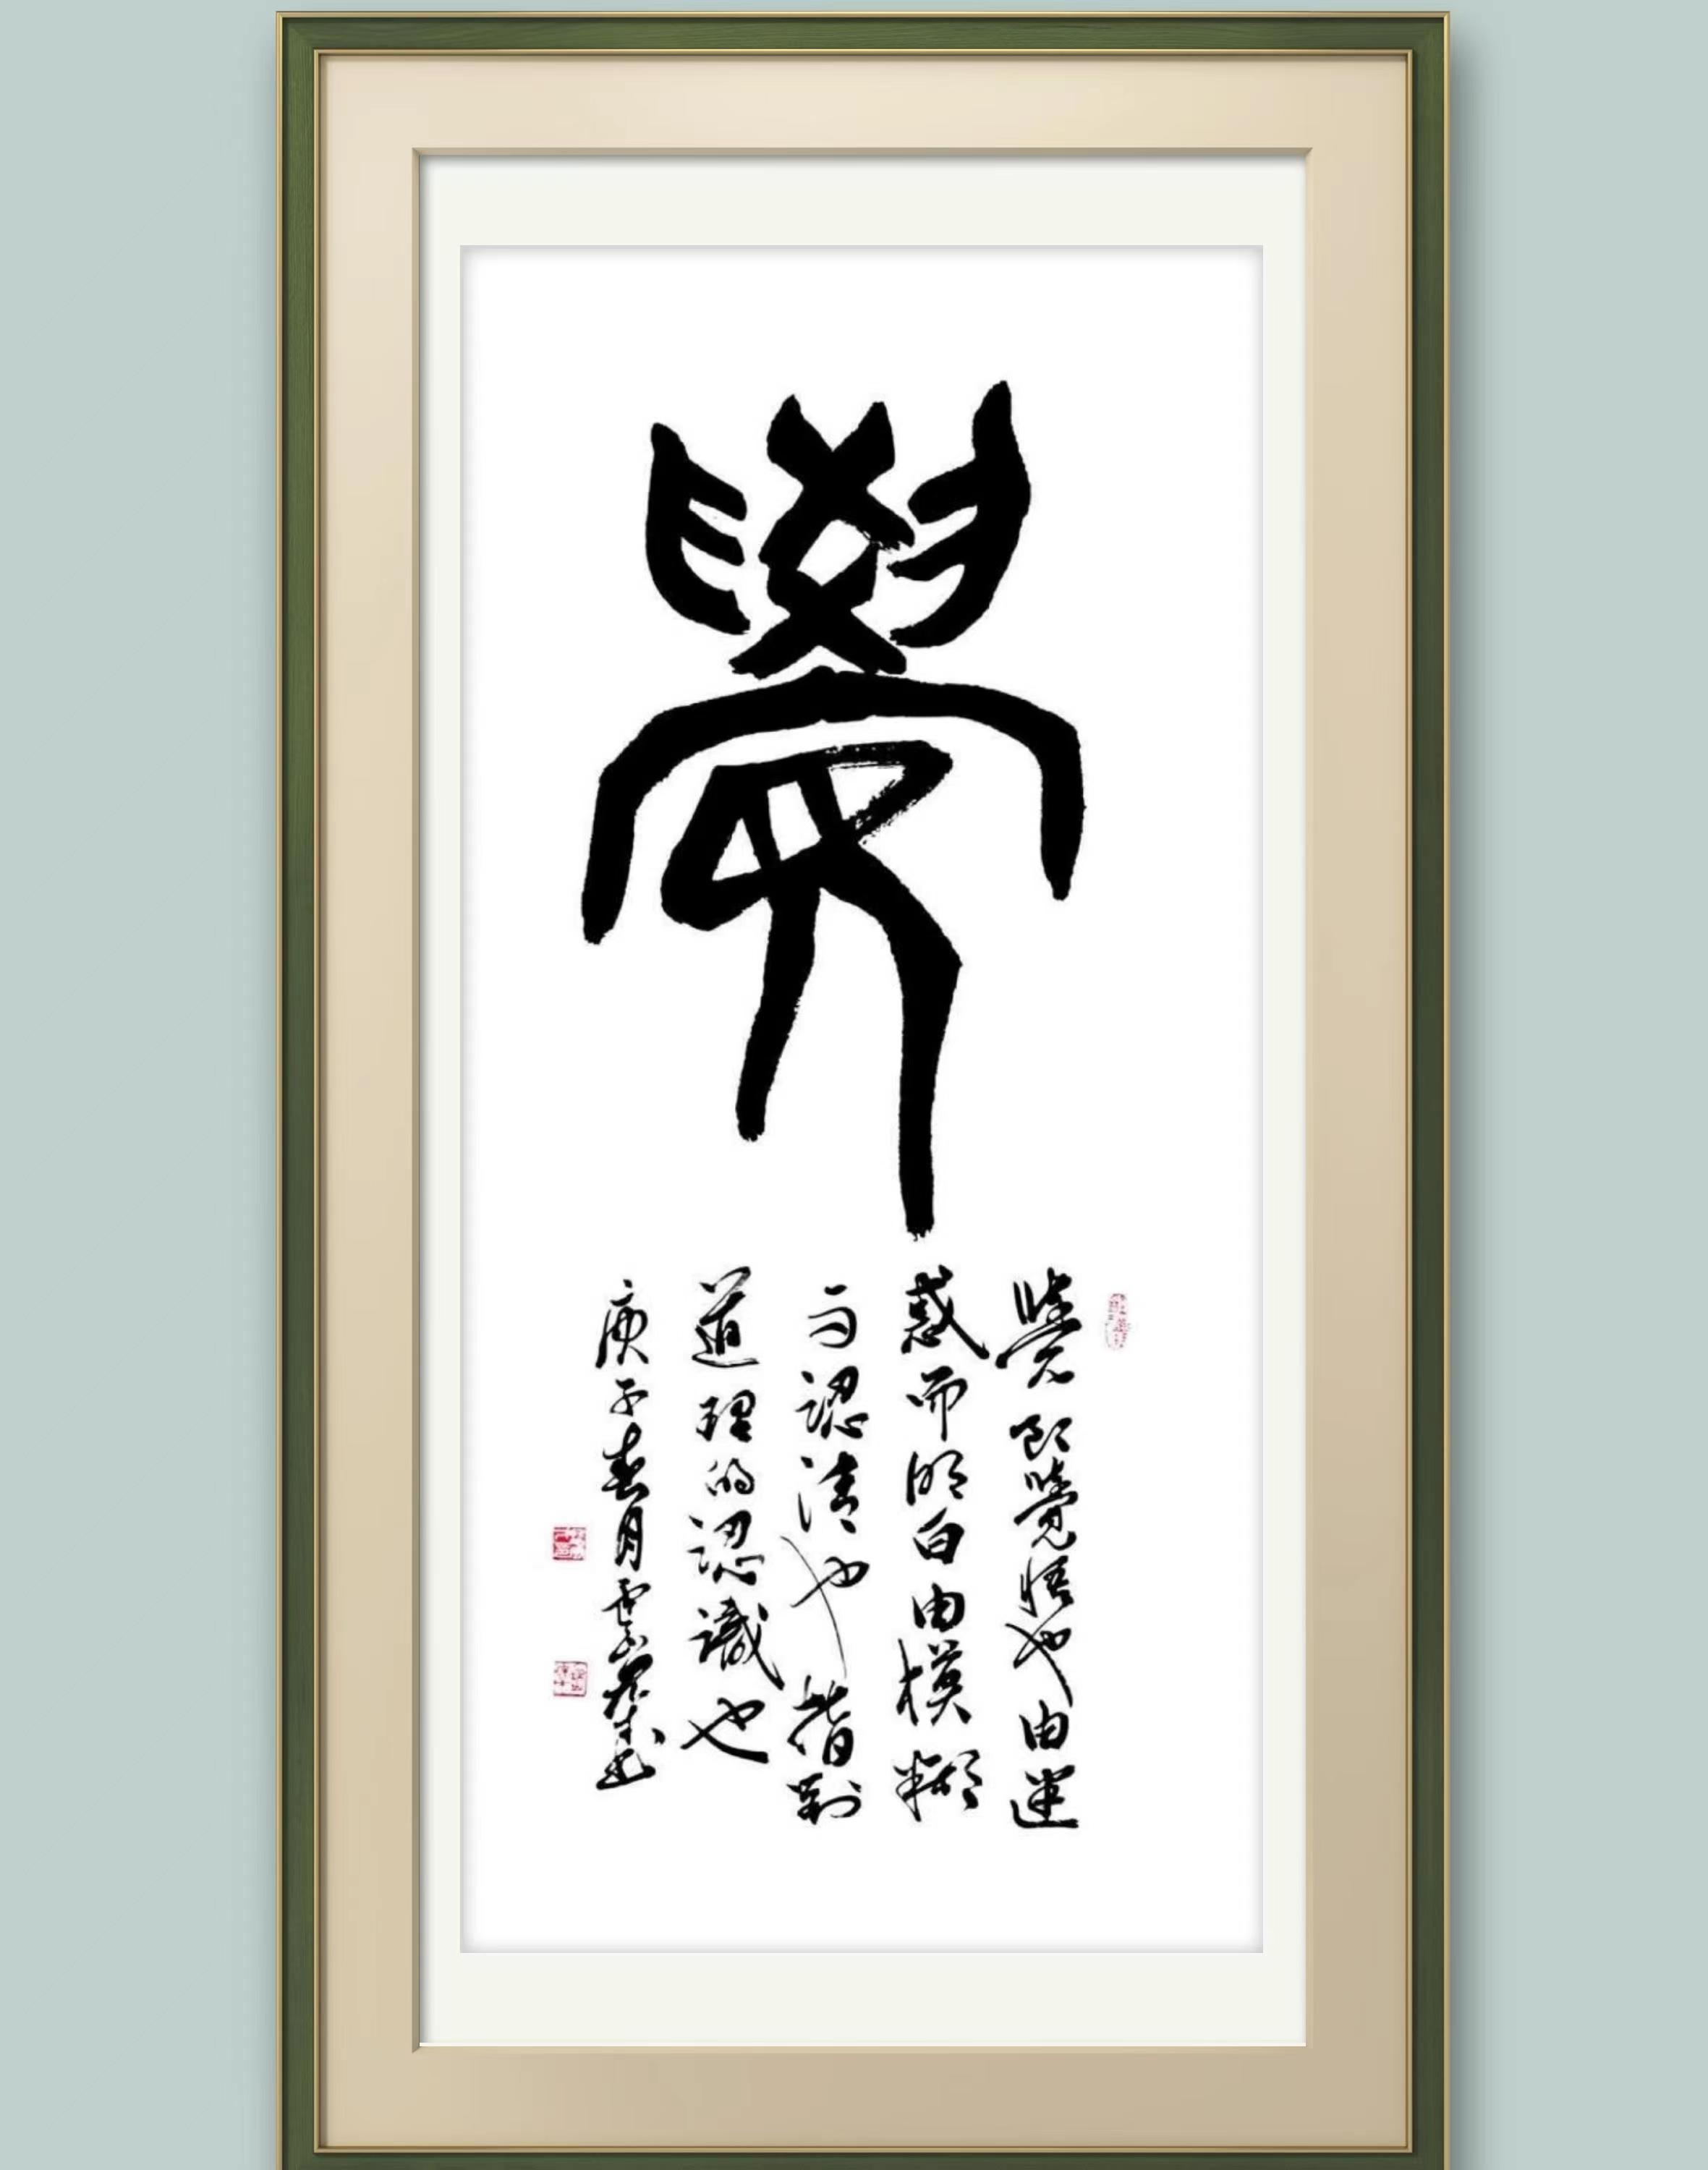 覺
覺即覺悟也由迷
惑而明白由模糊
而認清也指對
道理的認識也
庚子春月雲崖書